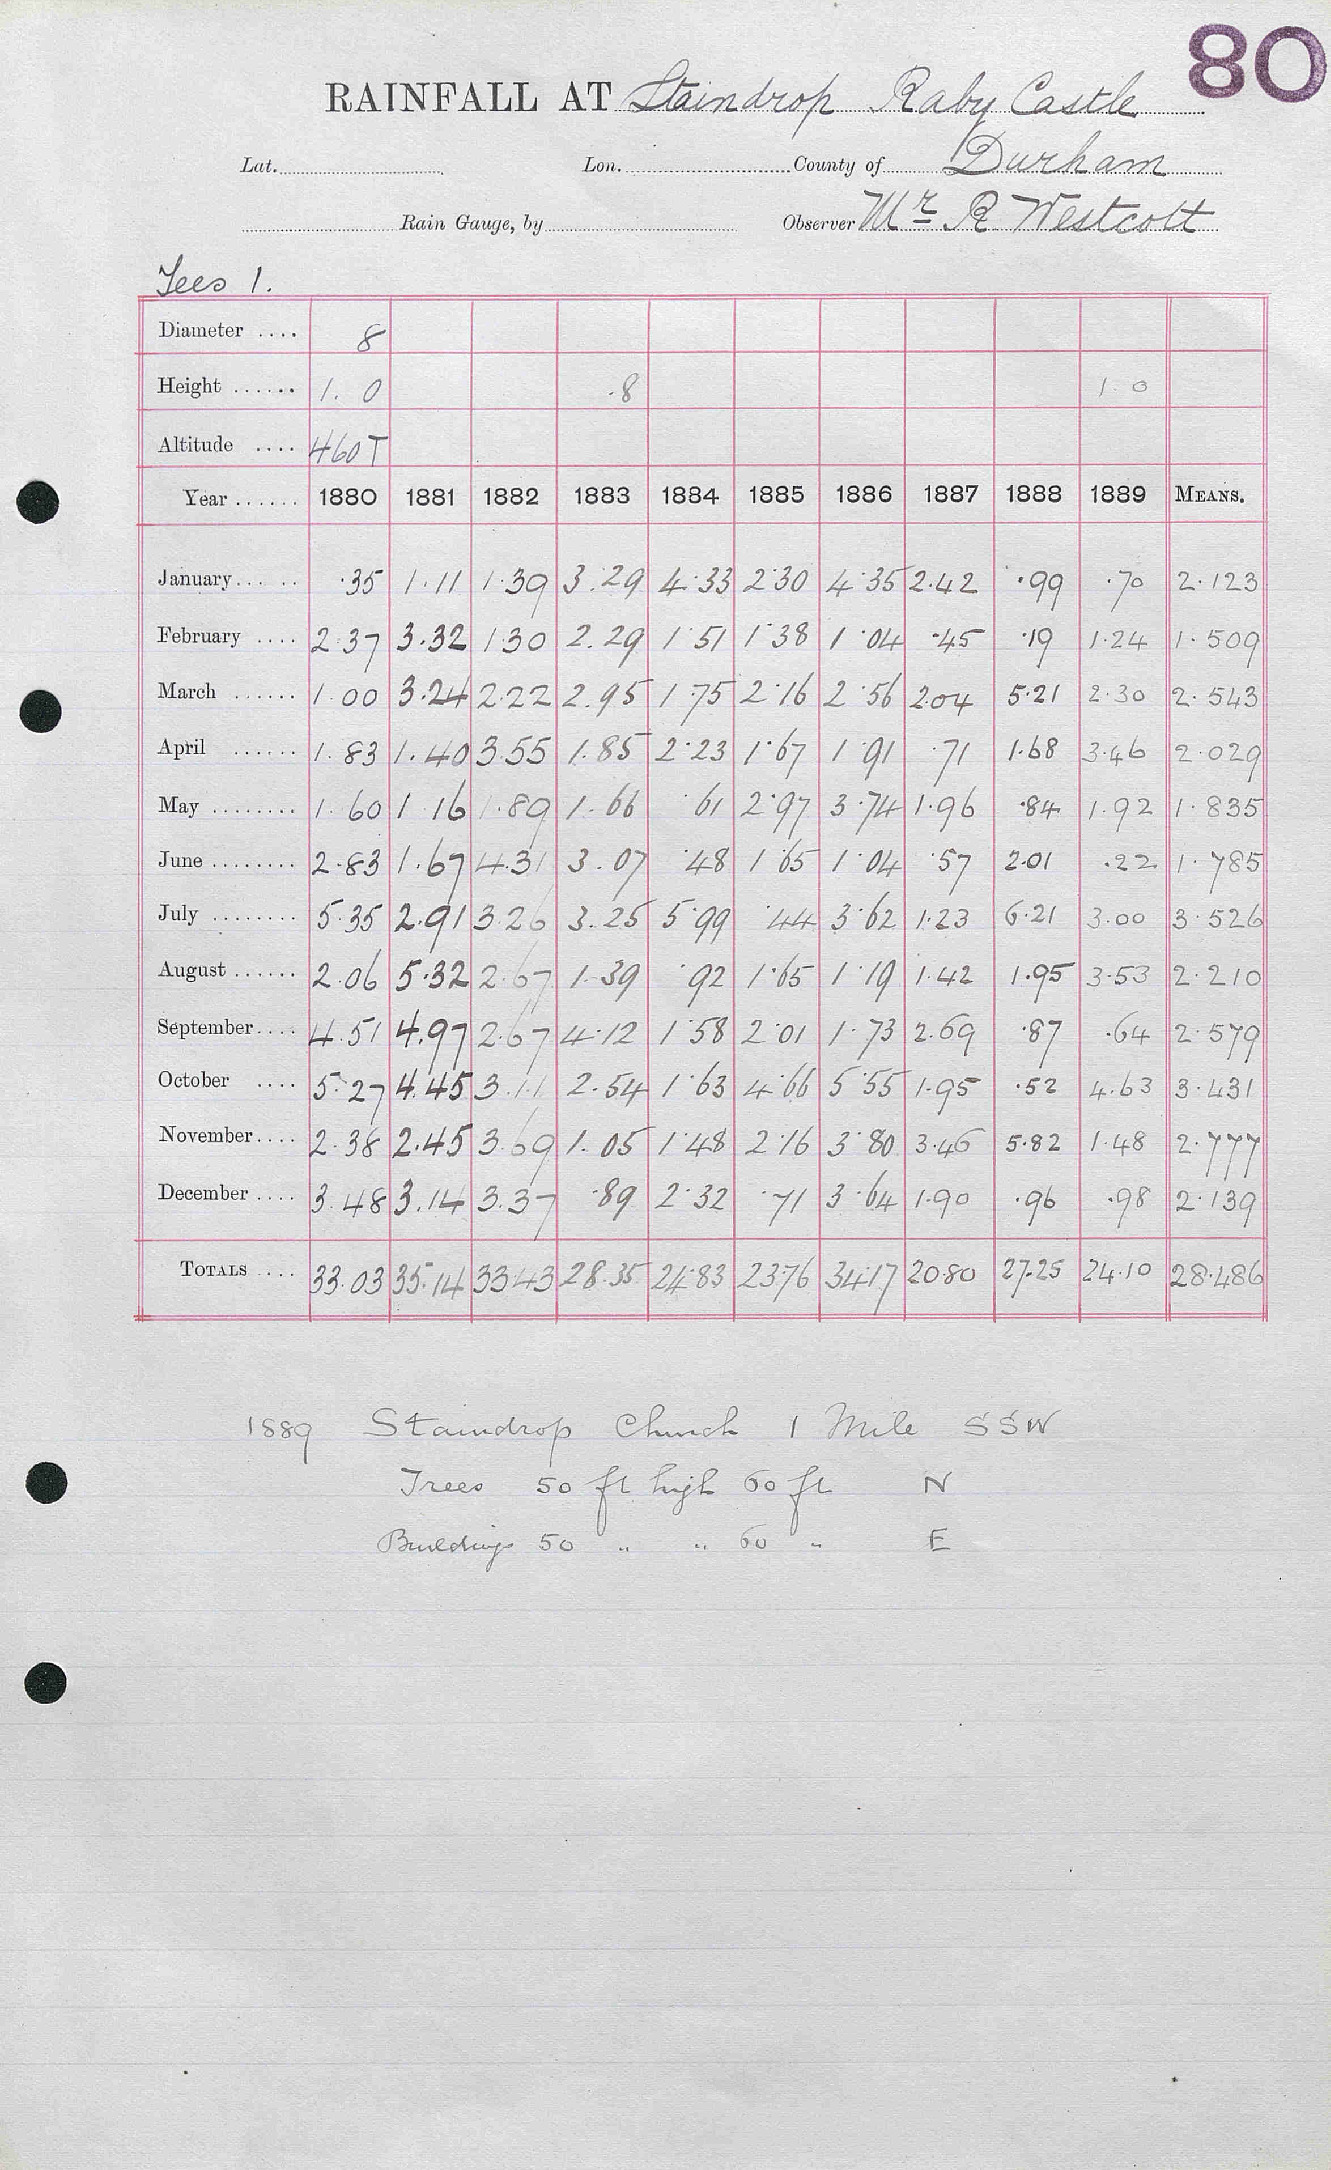 80
RAINFALL AT Staindrop Raby Castle
Lat. Lon. County of Durham
Rain Gauge, by Observer Mr R Westcott
Tees 1.
Diameter .... 8
Height ...... 1. 0 .8 1. 0
Altitude .... 460 T
Year ...... 1880 1881 1882 1883 1884 1885 1886 1887 1888 1889 MEANS.
January...... .35 1.11 1.39 3.29 4.33 2.30 4.35 2.42 .99 .70 2.123
February .... 2.37 3.32 1.30 2.29 1.51 1.38 1.04 .45 .19 1.24 1.509
March ...... 1.00 3.24 2.22 2.95 1.75 2.16 2.56 2.04 5.21 2.30 2.543
April ...... 1.83 1.40 3.55 1.85 2.23 1.67 1.91 .71 1.68 3.46 2.029
May ........ 1.60 1.16 1.89 1.66 .61 2.97 3.74 1.96 .84 1.92 1.835
June ........ 2.83 1.67 4.31 3.07 .48 1.65 1.04 .57 2.01 .22 1.785
July ........ 5.35 2.91 3.26 3.25 5.99 .44 3.62 1.23 6.21 3.00 3.526
August ...... 2.06 5.32 2.67 1.39 .92 1.65 1.19 1.42 1.95 3.53 2.210
September.... 4.51 4.97 2.67 4.12 1.58 2.01 1.73 2.69 .87 .64 2.579
October .... 5.27 4.45 3.11 2.54 1.63 4.66 5.55 1.95 .52 4.63 3.431
November.... 2.38 2.45 3.69 1.05 1.48 2.16 3.80 3.46 5.82 1.48 2.777
December .... 3.48 3.14 3.37 .89 2.32 .71 3.64 1.90 .96 .98 2.139
TOTALS .... 33.03 35.14 33.43 28.35 24.83 23.76 34.17 20.80 27.25 24.10 28.486
1889 Staindrop Church 1 Mile SSW
Trees 50 ft high 60 ft N
Buildings 50 " " 60 " E